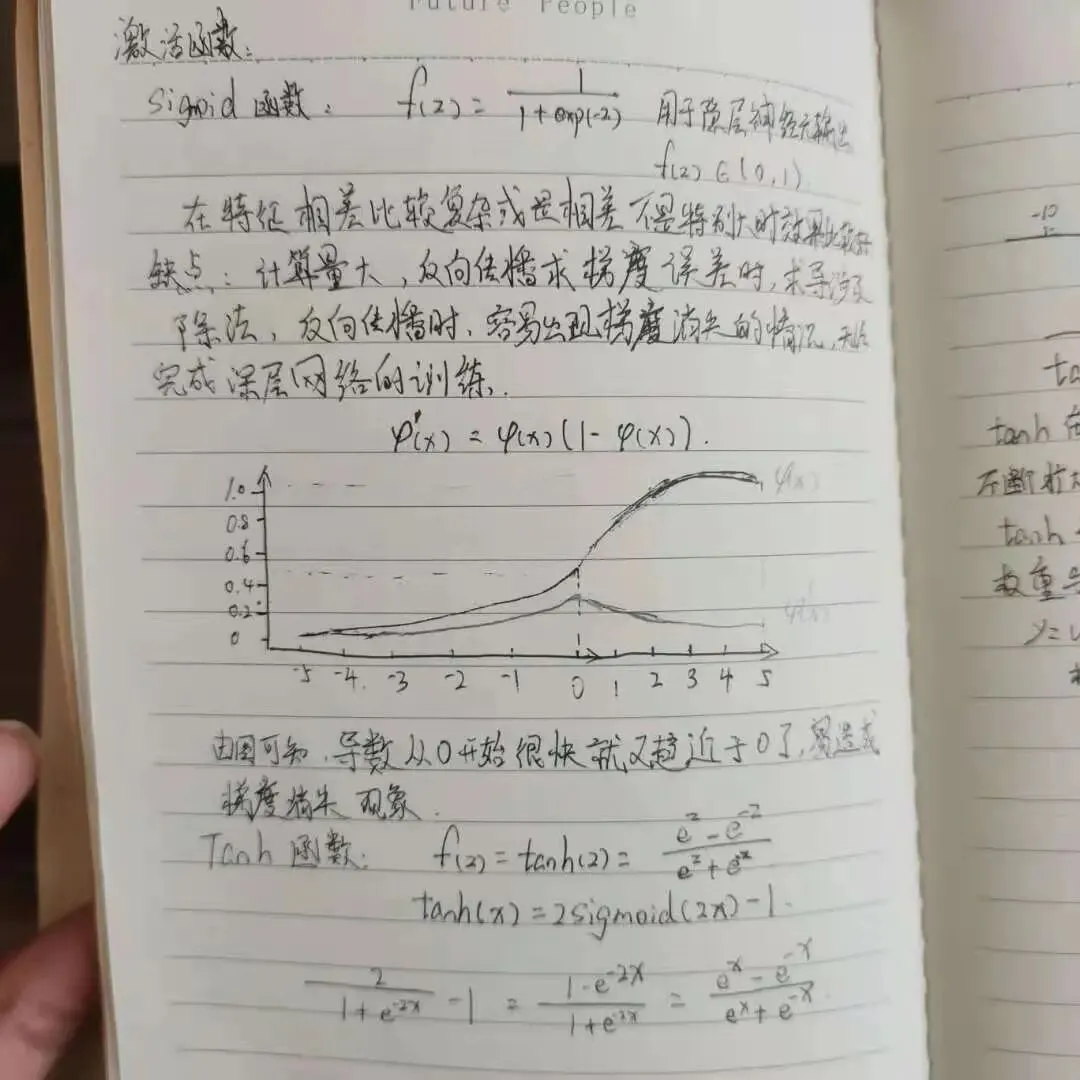 Future People
激活函数:
sigmoid 函数: f(z) = 1 / (1 + exp(-z)) 用于隐层神经元输出
f(z) ∈ (0,1)
在特征相差比较复杂或是相差不是特别大时效果比较好
缺点: 计算量大, 反向传播求梯度误差时, 求导涉及
除法, 反向传播时, 容易出现梯度消失的情况, 无法
完成深层网络的训练.
φ'(x) = φ(x)(1 - φ(x)).
1.0 φ(x)
0.8
0.6
0.4
0.2 φ'(x)
0
-5 -4 -3 -2 -1 0 1 2 3 4 5
由图可知, 导数从0开始很快就又趋近于0了, 易造成
梯度消失现象.
Tanh 函数: f(z) = tanh(z) = (e^z - e^-z) / (e^z + e^-z)
tanh(x) = 2sigmoid(2x) - 1.
2 / (1 + e^-2x) - 1 = (1 - e^-2x) / (1 + e^-2x) = (e^x - e^-x) / (e^x + e^-x).
tanh
不断扩大
tanh
权重
y=